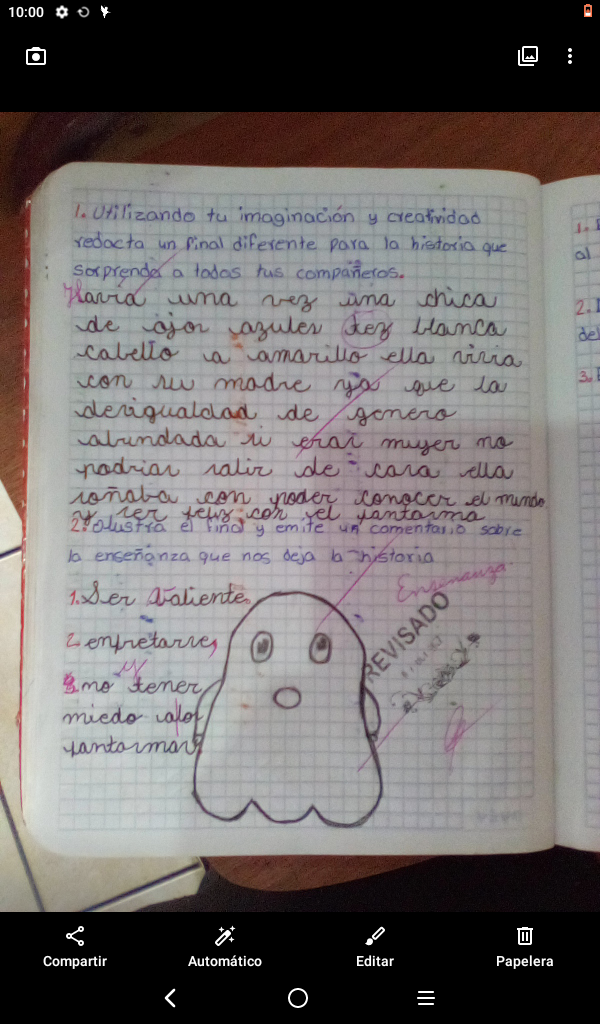 10:00
1. Utilizando tu imaginación y creatividad
redacta un final diferente para la historia que
sorprenda a todos tus compañeros.
Havia una vez una chica
de ojos azules tez blanca
cabello a amarillo ella vivia
con su madre ya que la
desigualdad de genero
abundada si eras mujer no
podrias salir de casa ella
soñaba con poder conocer el mundo
y ser feliz con el fantasma
2. Ilustra el final y emite un comentario sobre
la enseñanza que nos deja la historia
Enseñanza
1. Ser Valiente,
REVISADO
2 enfretarse,
y
3 no tener
miedo alos
fantasmas
1.
al
2.
del
3.
Compartir
Automático
Editar
Papelera